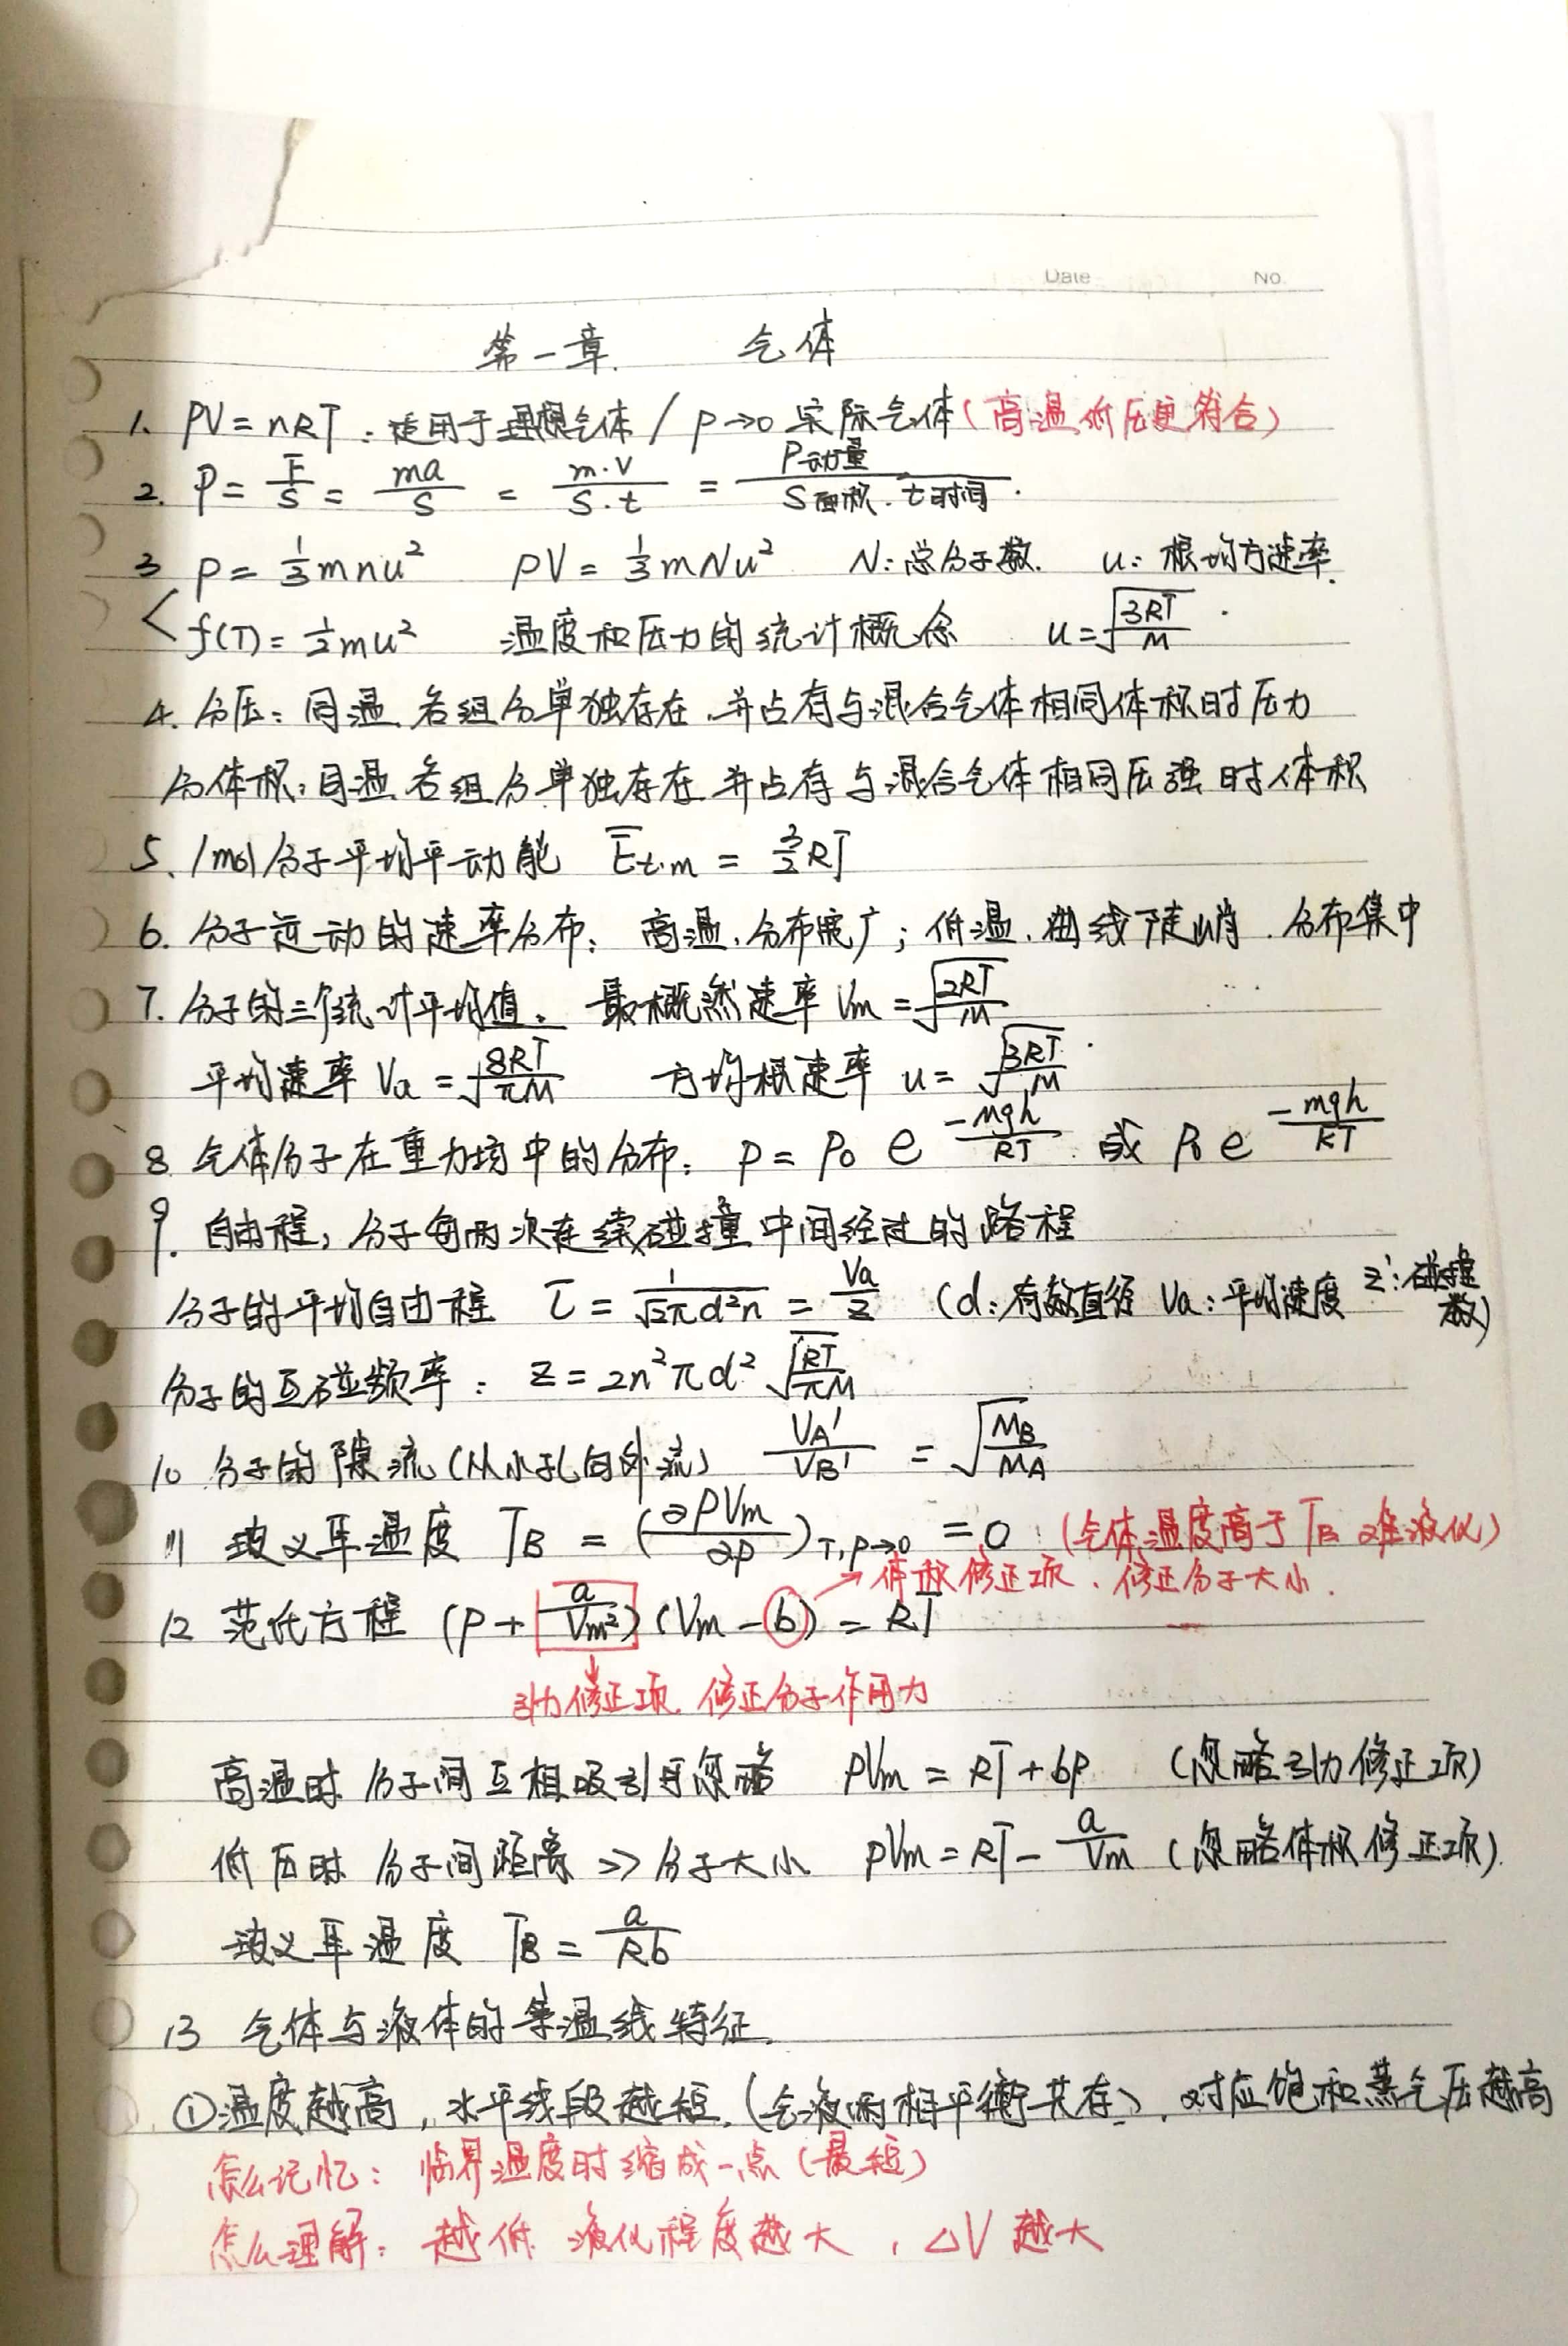 Date No.
第一章. 气体
1. PV=nRT:适用于理想气体/p→0实际气体(高温低压更符合)
2. P=F/S=ma/S=m·v/S·t=P动量/S面积·t时间.
3 p=1/3mnu² pV=1/3mNu² N:总分子数. u:根均方速率.
f(T)=1/2mu² 温度和压力的统计概念 u=√(3RT/M)
4. 分压:同温 各组分单独存在.并占有与混合气体相同体积时压力
分体积:同温 各组分单独存在 并占有与混合气体相同压强时体积
5. 1mol分子平均平动能 Ēt.m=3/2RT
6. 分子运动的速率分布: 高温.分布宽广;低温.曲线陡峭.分布集中
7. 分子的三个统计平均值. 最概然速率Vm=√(2RT/M)
平均速率Va=√(8RT/πM) 方均根速率u=√(3RT/M)
8 气体分子在重力场中的分布: p=p₀ e^(-Mgh/RT) 或 p₀ e^(-mgh/kT)
9. 自由程:分子每两次连续碰撞中间经过的路程
分子的平均自由程 l̄=1/(√2πd²n)=Va/z (d:有效直径 Va:平均速度 z':碰撞数)
分子的互碰频率: z=2n²πd²√(RT/πM)
10 分子的隙流(从小孔向外流) VA'/VB'=√(MB/MA)
11 波义耳温度 TB=(∂pVm/∂p)T,p→0=0 (气体温度高于TB难液化)
体积修正项.修正分子大小.
12 范氏方程 (p+a/Vm²)(Vm-b)=RT
引力修正项.修正分子作用力
高温时 分子间互相吸引可忽略 pVm=RT+bp (忽略引力修正项)
低压时 分子间距离>>分子大小 pVm=RT-a/Vm (忽略体积修正项)
波义耳温度 TB=a/Rb
13 气体与液体的等温线特征.
①温度越高,水平线段越短.(气液两相平衡共存).对应饱和蒸气压越高
怎么记忆:临界温度时缩成一点(最短)
怎么理解:越低 液化程度越大,△V越大